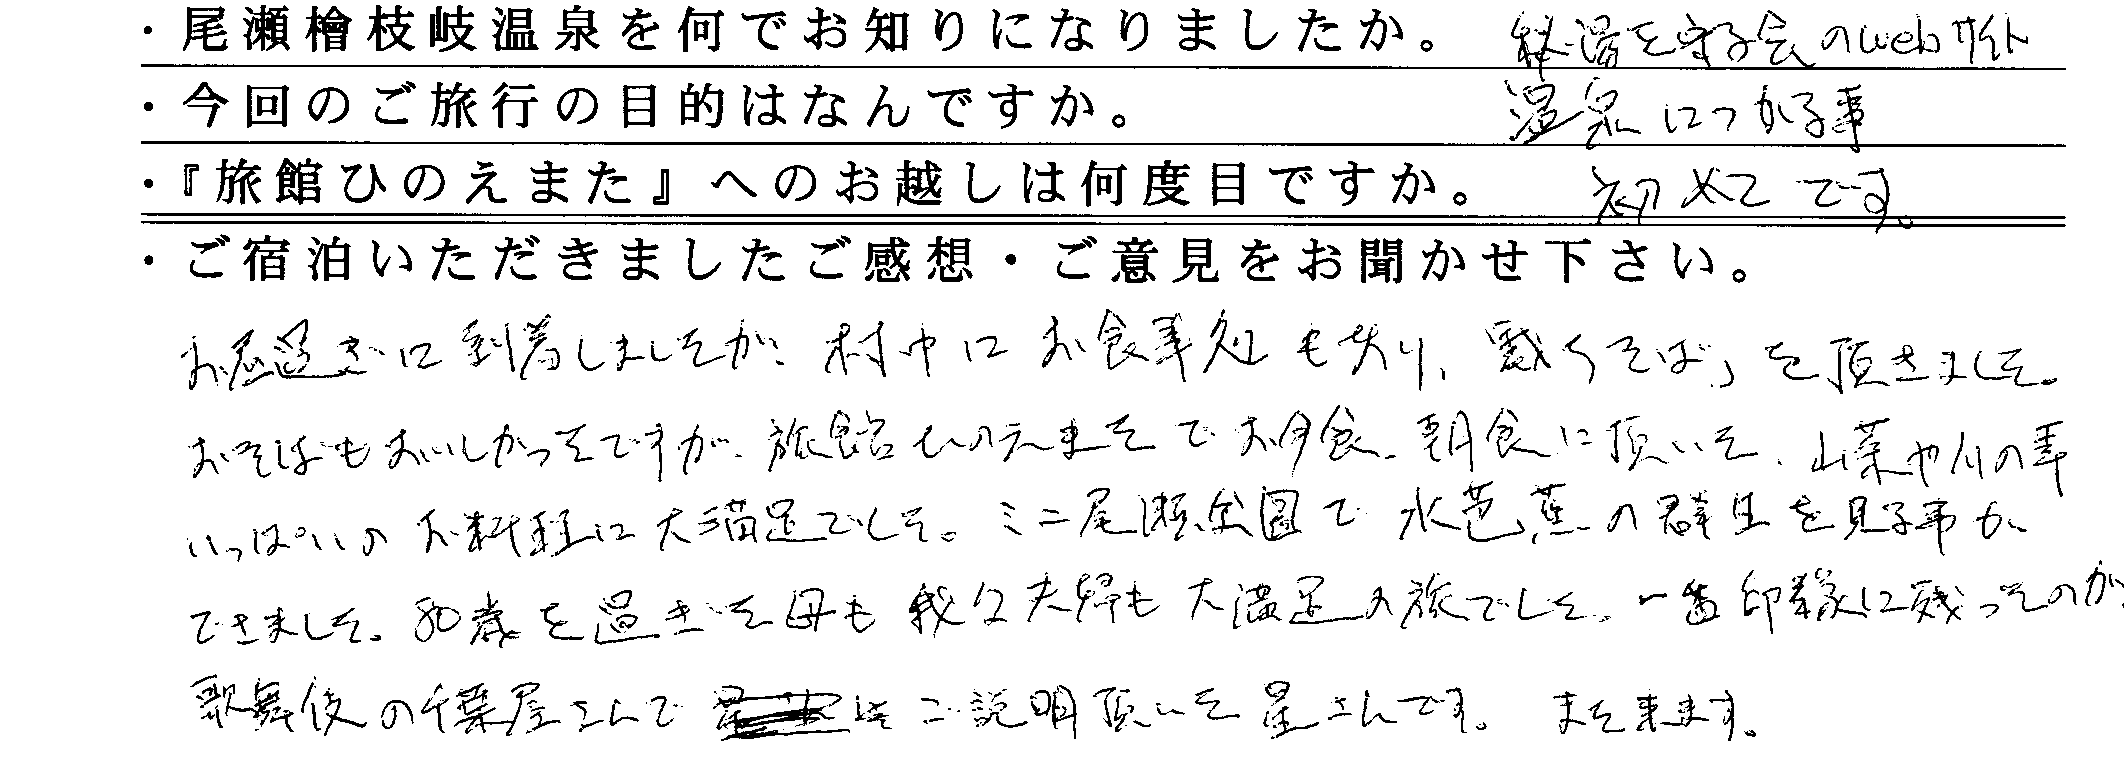 ・尾瀬檜枝岐温泉を何でお知りになりましたか。 秘湯を守る会のwebサイト
・今回のご旅行の目的はなんですか。 温泉につかる事
・『旅館ひのえまた』へのお越しは何度目ですか。 初めてです。
・ご宿泊いただきましたご感想・ご意見をお聞かせ下さい。
お昼過ぎに到着しましたが、村中にお食事処も有り、裁ちそば」を頂きました。
おそばもおいしかったですが、旅館ひのえまたでお夕食、朝食に頂いた、山菜や川の幸
いっぱいのお料理に大満足でした。ミニ尾瀬公園で水芭蕉の群生を見る事が
できました。80歳を過ぎた母も我々夫婦も大満足の旅でした。一番印象に残ったのが、
歌舞伎の千葉屋さんで ご説明頂いた星さんです。 また来ます。